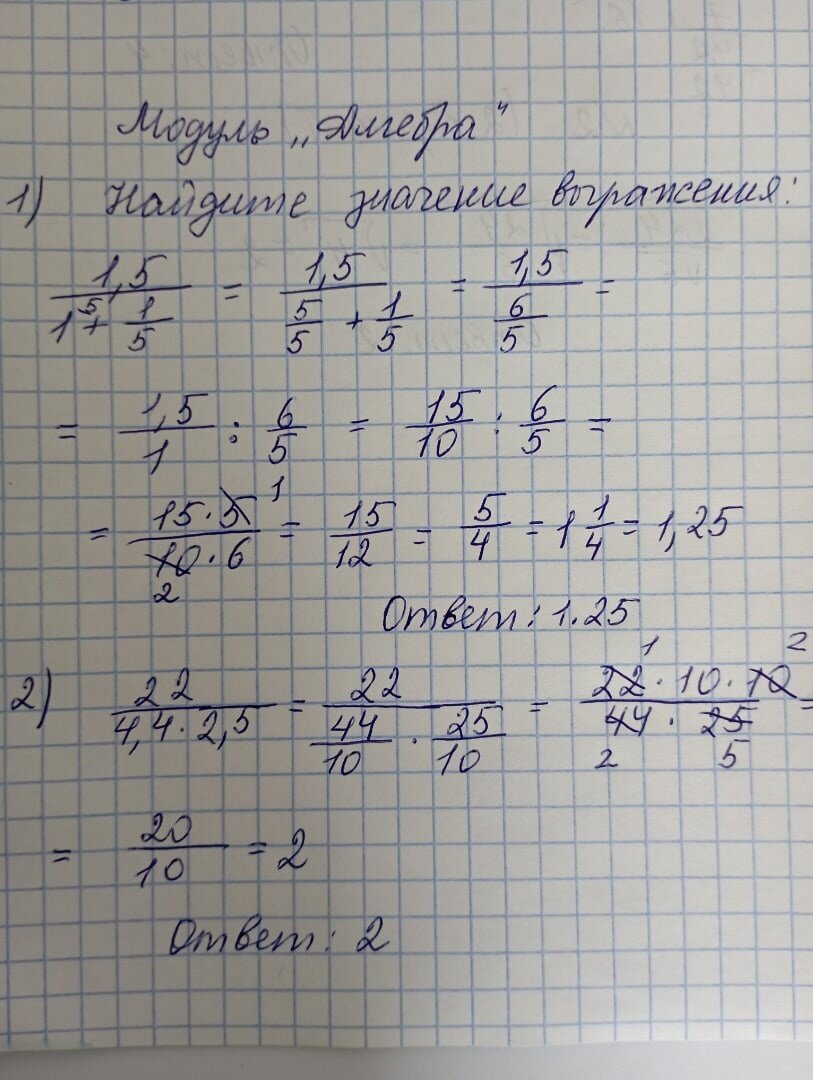 Модуль „Алгебра"
1) Найдите значение выражения:
1,5 / (1^5 + 1/5) = 1,5 / (5/5 + 1/5) = 1,5 / (6/5) =
= 1,5/1 : 6/5 = 15/10 : 6/5 =
= (15 · 5 1) / (10 2 · 6) = 15/12 = 5/4 = 1 1/4 = 1,25
Ответ: 1.25
2) 22 / (4,4 · 2,5) = 22 / (44/10 · 25/10) = (22 1 · 10 · 10 2) / (44 2 · 25 5) =
= 20/10 = 2
Ответ: 2